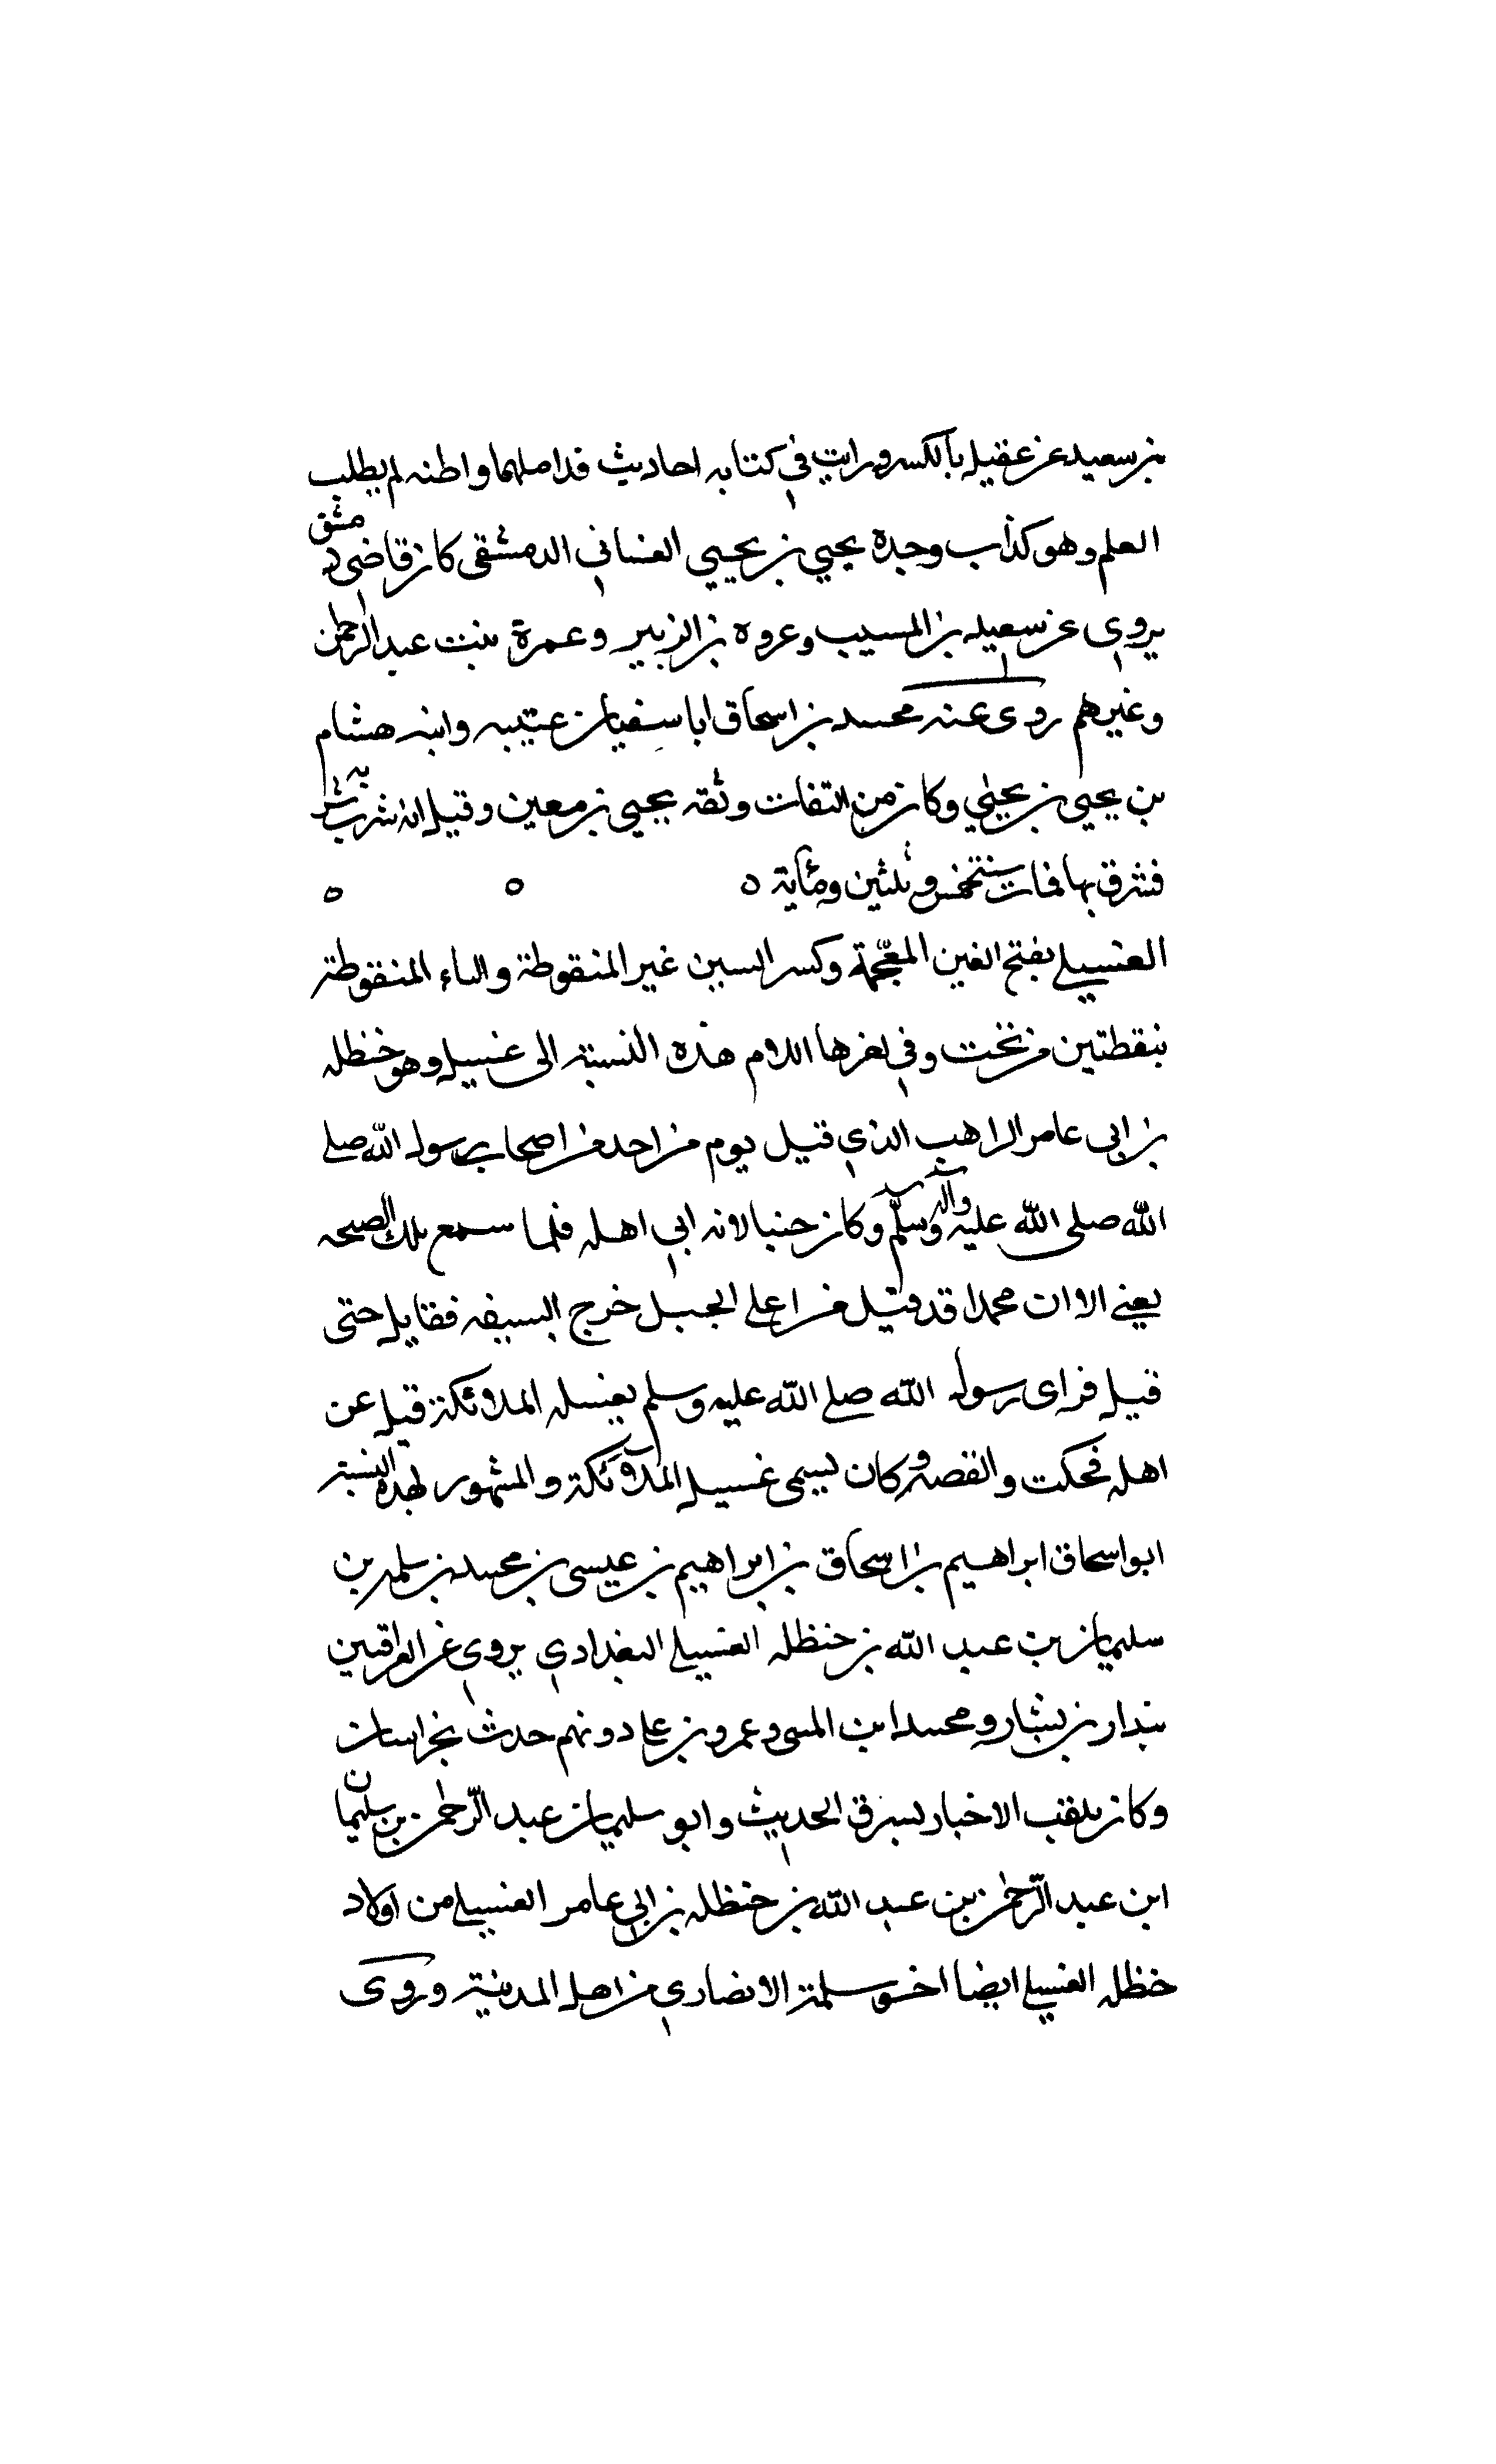 بن سعيد عن عقيل بالكسر ورايت في كتابه احاديث قد املهما واظنه لم يطلب
العلم وهو كذاب وجده يحيى بن يحيى الغساني الدمشقي كان قاضي دمشق
يروي عن سعيد بن المسيب وعروه بن الزبير وعمرة بنت عبد الرحمن
وغيرهم روى عنه محمد بن اسحاق ابا سفيان عتيبه وابنه هشام
بن يحيى بن يحيى وكان من الثقات وثقه يحيى بن معين وقيل انه شرب شربه
فشرق بها فمات سنة خمس وثلثين ومأية ه ه ه
الغسيلي بفتح الغين المعجمة وكسر السين غير المنقوطة والياء المنقوطة
بنقطتين من تحت وفي اخرها اللام هذه النسبة الى غسيل وهو حنظله
بن ابي عامر الراهب الذي قتيل يوم من احد من اصحاب رسول الله صلى
الله صلى الله عليه وآله وسلم وكان جنبا لانه اتى اهله فلما سمع تلك الصيحه
يعني الا ان محمدا قد قتيل من اعلى الجبل خرج بسيفه فقاتل حتى
قتل فراى رسول الله صلى الله عليه وسلم يغسله الملائكة قيل عن
اهله فحكت والقصه وكان يسمى غسيل الملائكة والمشهور بهذه النسبة
ابو اسحاق ابراهيم بن اسحاق بن ابراهيم بن عيسى بن محمد بن سلمه بن
سليمان بن عبد الله بن حنظله الغسيلي البغدادي يروي عن العراقيين
بندار بن بشار ومحمد ابن المثنى وعمرو بن علي دونهم حدث بخراسان
وكان يقلب الاخبار يسرق الحديث وابو سليمان عبد الرحمن بن سليمان
ابن عبد الرحمن بن عبد الله بن حنظله بن ابي عامر الغسيلي من اولاد
حنظله الغسيلي ايضا اخو سلمة الانصاري من اهل المدينة وروى